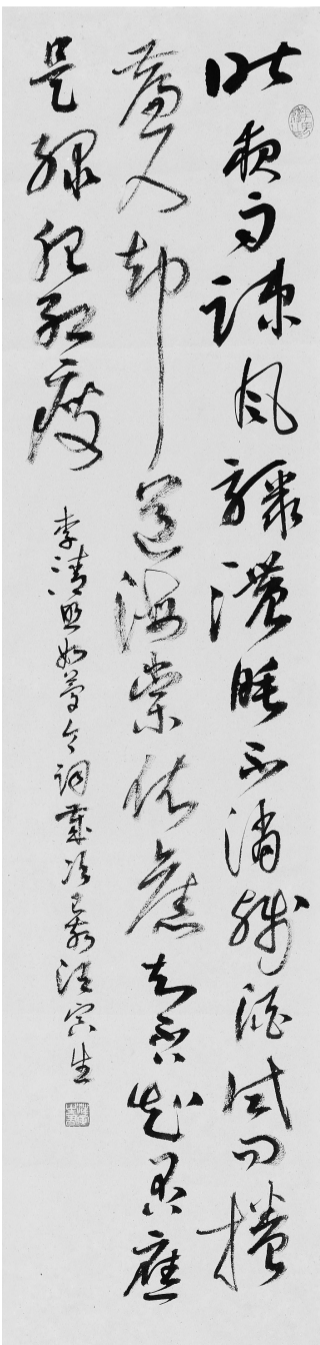 昨夜雨疎風驟濃睡不消殘酒試問捲
簾人却道海棠依舊知否知否應
是綠肥紅瘦
李清照如夢令詞歲次己 汪寅生